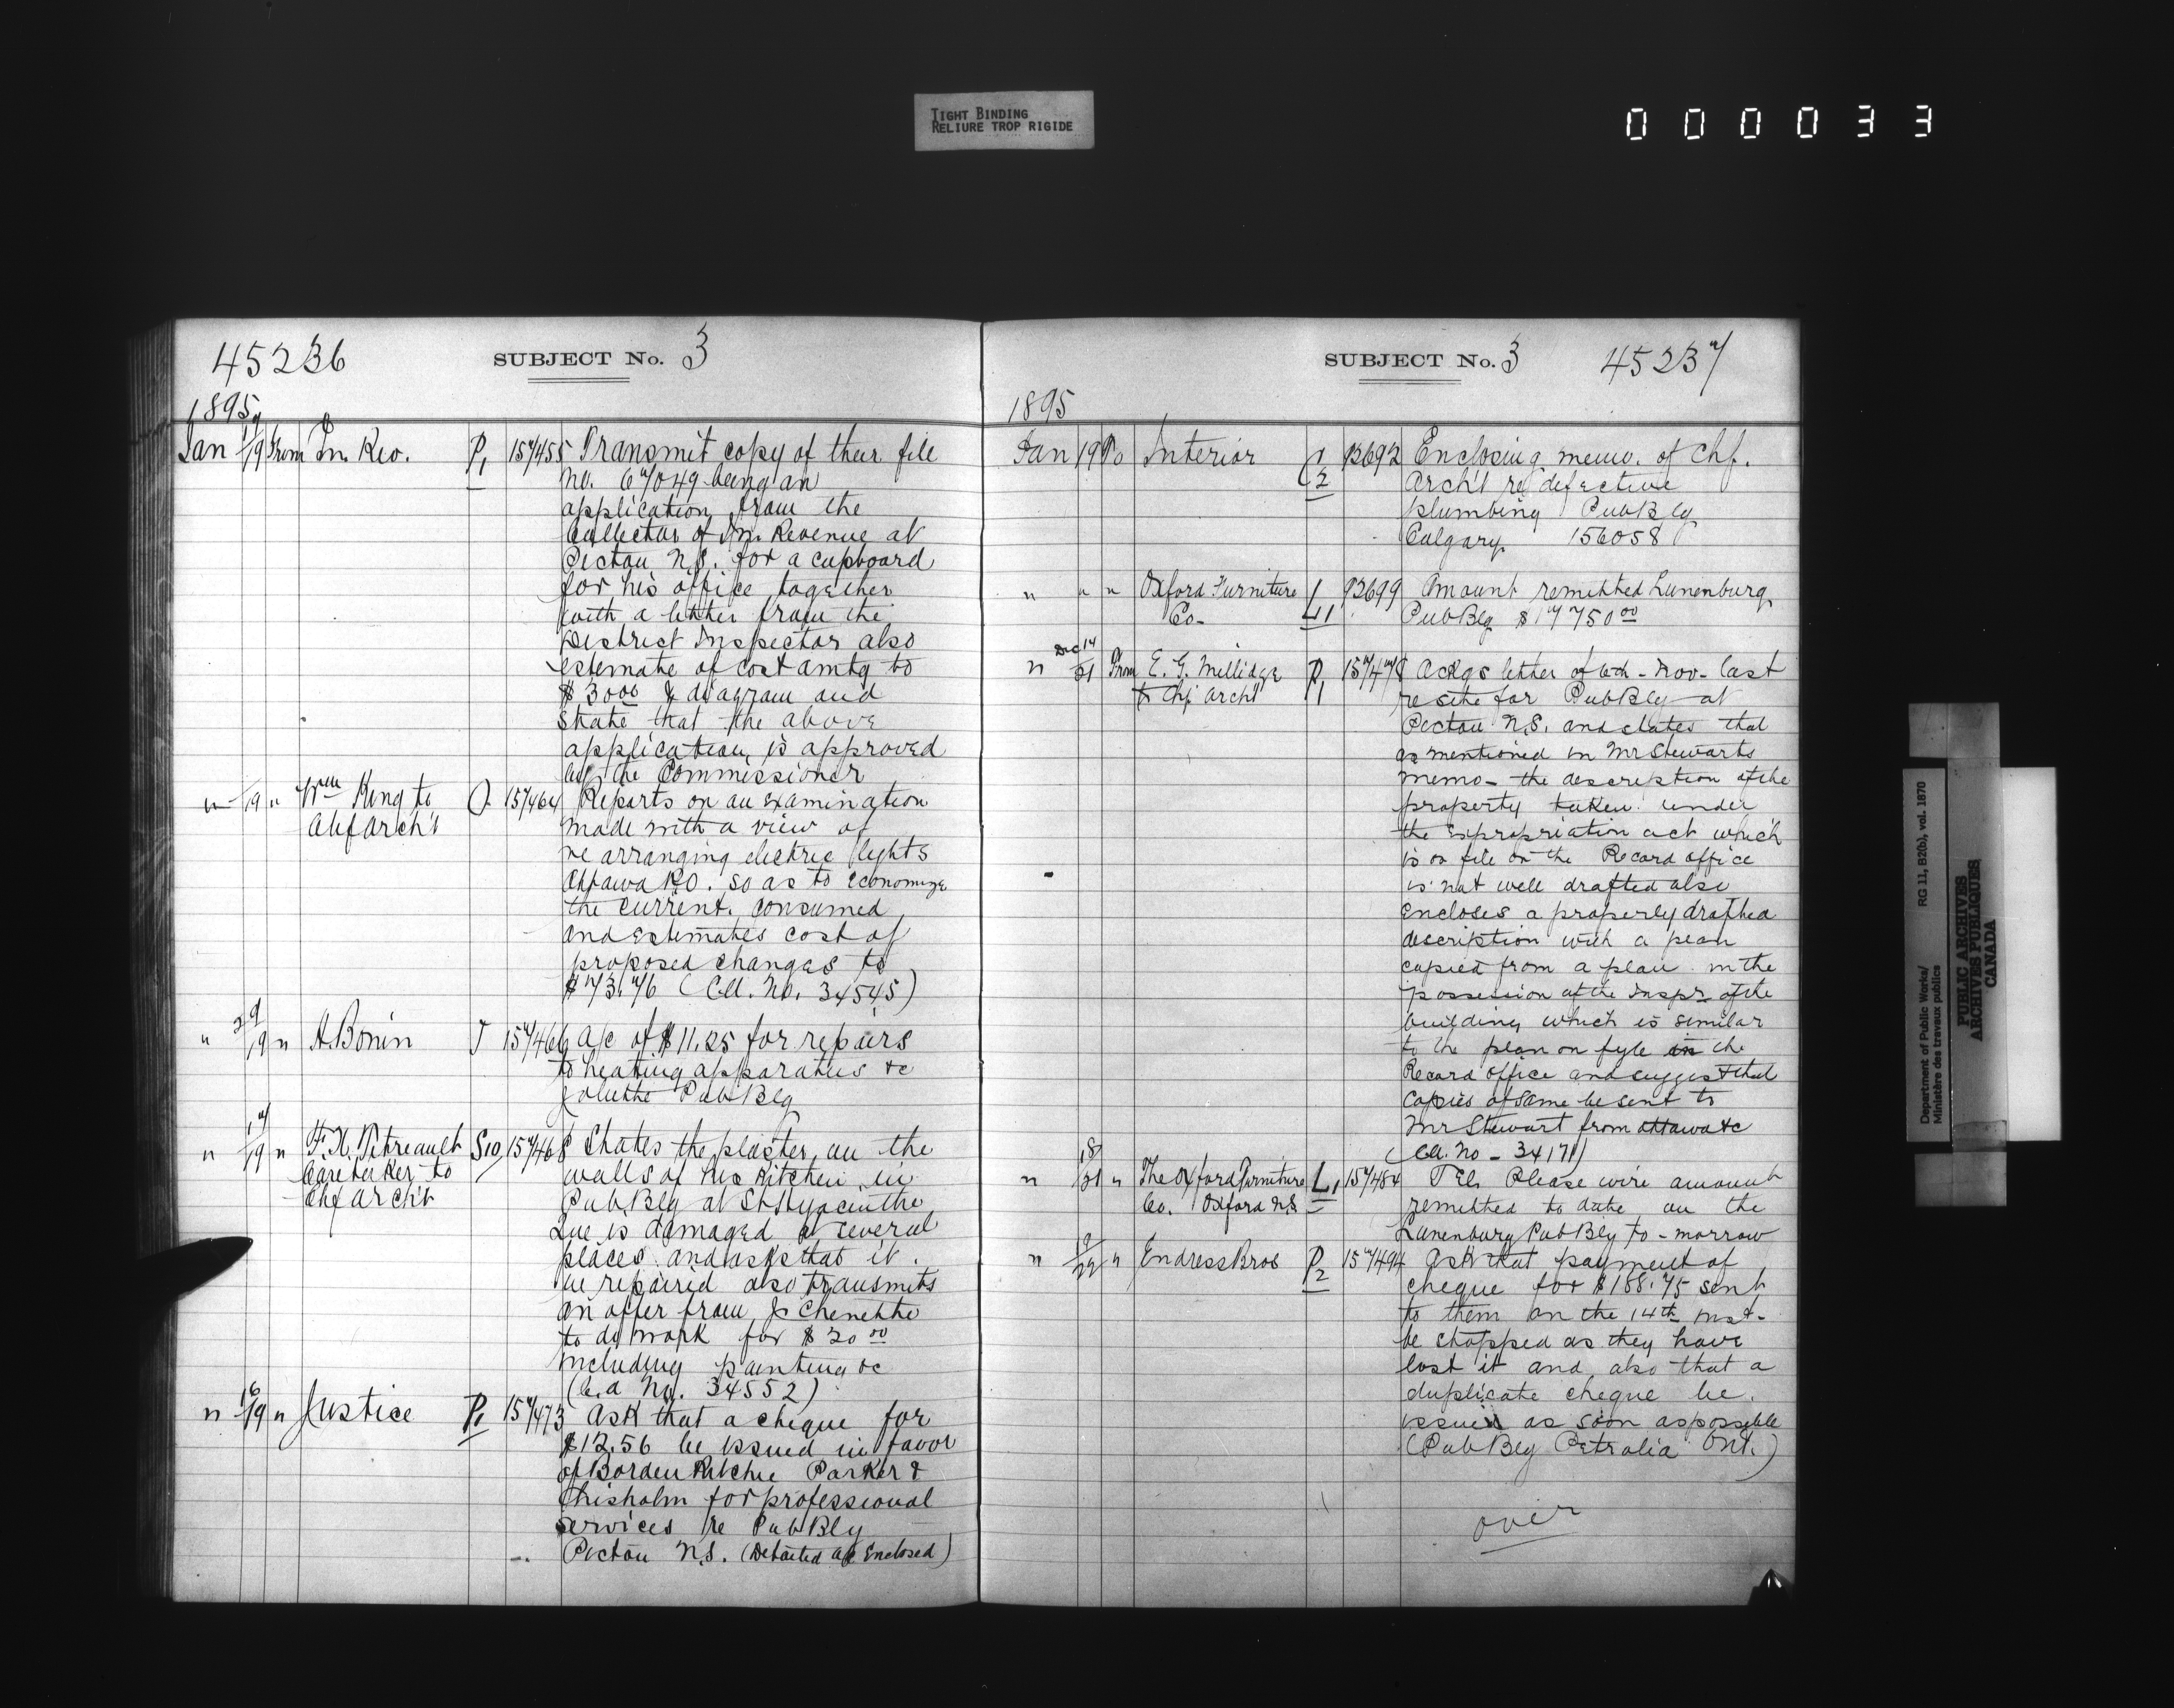 TIGHT BINDING
RELIURE TROP RIGIDE
000033
45236
SUBJECT No. 3
1895
Jan 9/19 From In. Rev. P1 157455 Transmit copy of their file
No. 67049 being an
application from the
Collector of In. Revenue at
Pictou N.S. for a cupboard
for his office together
with a letter from the
District Inspector also
estimate of cost amtg to
$30 00 & diagram and
state that the above
application is approved
by the Commissioner
" 19 " Wm King to O. 157464 Reports on an examination
Chf Arch't made with a view of
re arranging electric lights
Ottawa P.O. so as to economize
the current consumed
and estimates cost of
proposed changes to
$73.76 (C.A. No. 34545)
" 19 " A. Bonin J 157466 a/c of $11.25 for repairs
to heating apparatus &c
Joliette Pub Blg
" 17/19 " F.X. Petreault S10 157468 States the plaster on the
Caretaker to walls of his Kitchen in
Chf Arch't Pub Blg at St Hyacinthe
Que is damaged at several
places and asks that it
be repaired also transmits
an offer from J. Chenette
to do work for $20 00
including painting &c
(C.A No. 34552)
" 16/19 " Justice P1 157473 Ask that a cheque for
$12.56 be issued in favor
of Borden Ritchie Parker &
Chisholm for professional
services re Pub Blg
Pictou N.S. (Detailed a/c Enclosed)
SUBJECT No. 3
45237
1895
Jan 19 To Interior C 1/2 92692 Enclosing memo. of Chf.
Arch't re defective
plumbing Pub Blg
Calgary 156058
" " " Oxford Furniture 92699 Amount remitted Lunenburg
Co- L1 Pub Blg $17750 00
" Dec 14/21 From E. G. Millidge P1 157478 Ackgs letter of 6th Nov. last
to Chf Archt re site for Pub Blg at
Pictou N.S. and states that
as mentioned in Mr Stewarts
memo- the description of the
property taken under
the expropriation act which
is on file in the Record office
is not well drafted also
encloses a properly drafted
description with a plan
copied from a plan in the
possession of the Inspr of the
building which is similar
to the plan on fyle in the
Record office and suggest that
copies of same be sent to
Mr Stewart from Ottawa &c
(C.A. No - 34171)
" 18/21 " The Oxford Furniture L1 157484 Tel. Please wire amount
Co. Oxford N.S. remitted to date on the
Lunenburg Pub Blg to-morrow
" 19/22 " Endress Bros P2 157494 Ask that payment of
cheque for $188.75 sent
to them on the 14th inst-
be stopped as they have
lost it and also that a
duplicate cheque be
issued as soon as possible
(Pub Blg Petrolia Ont.)
over
Department of Public Works/ RG 11, B2(b), vol. 1870
Ministère des travaux publics
PUBLIC ARCHIVES
ARCHIVES PUBLIQUES
CANADA